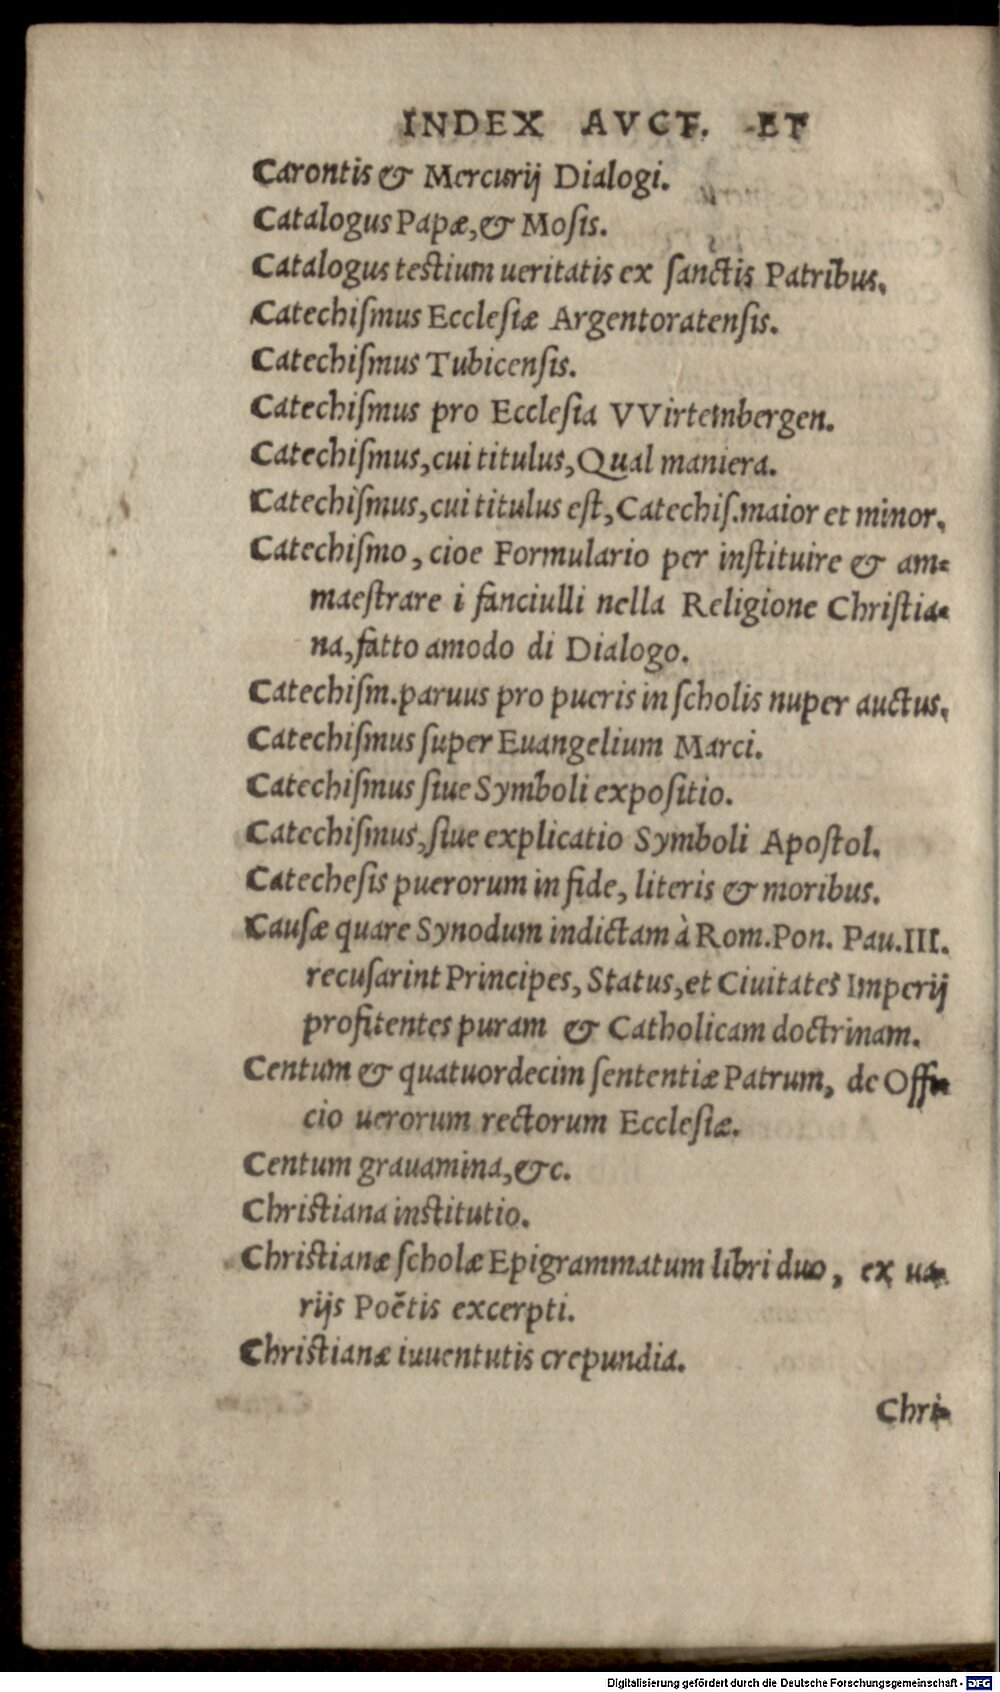 INDEX AVCT. ET
Carontis & Mercurij Dialogi.
Catalogus Papæ, & Mosis.
Catalogus testium ueritatis ex ſanctis Patribus.
Catechiſmus Eccleſiæ Argentoratenſis.
Catechiſmus Tubicenſis.
Catechiſmus pro Eccleſia VVirtembergen.
Catechiſmus, cui titulus, Qual maniera.
Catechiſmus, cui titulus eſt, Catechiſ. maior et minor.
Catechiſmo, cioe Formulario per inſtituire & am-
maeſtrare i fanciulli nella Religione Chriſtia-
na, fatto amodo di Dialogo.
Catechiſm. paruus pro pueris in ſcholis nuper auctus.
Catechiſmus ſuper Euangelium Marci.
Catechiſmus ſiue Symboli expoſitio.
Catechiſmus, ſiue explicatio Symboli Apoſtol.
Catecheſis puerorum in fide, literis & moribus.
Cauſæ quare Synodum indictam à Rom. Pon. Pau. III.
recuſarint Principes, Status, et Ciuitates Imperij
profitentes puram & Catholicam doctrinam.
Centum & quatuordecim ſententiæ Patrum, de Offi-
cio uerorum rectorum Eccleſiæ.
Centum grauamina, &c.
Chriſtiana inſtitutio.
Chriſtianæ ſcholæ Epigrammatum libri duo, ex ua-
rijs Poëtis excerpti.
Chriſtianæ iuuentutis crepundia.
Chri-
Digitalisierung gefördert durch die Deutsche Forschungsgemeinschaft - DFG